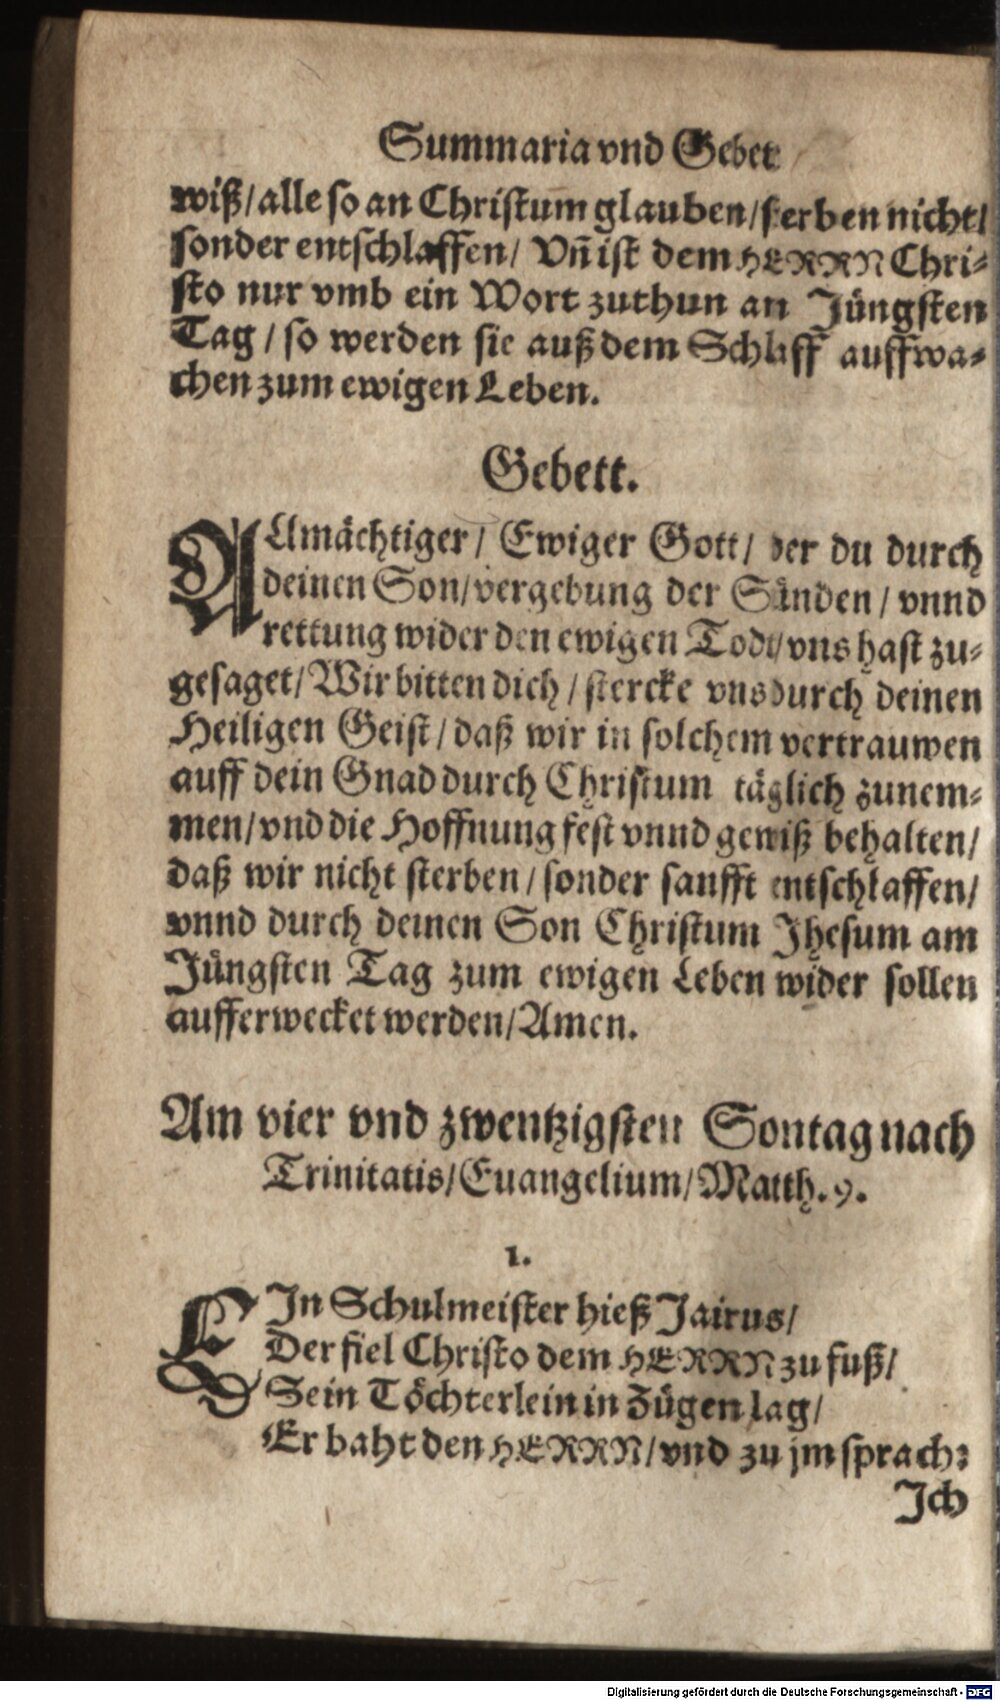 Summaria vnd Gebet
wiß/ alle so an Christum glauben/ sterben nicht/
sonder entschlaffen/ Vñ ist dem HERRN Chri-
sto nur vmb ein Wort zuthun an Jüngsten
Tag/ so werden sie auß dem Schlaff auffwa-
chen zum ewigen Leben.
Gebett.
Allmächtiger/ Ewiger Gott/ der du durch
deinen Son/ vergebung der Sünden/ vnnd
rettung wider den ewigen Todt/ vns hast zu-
gesaget/ Wir bitten dich/ stercke vns durch deinen
Heiligen Geist/ daß wir in solchem vertrauwen
auff dein Gnad durch Christum täglich zunem-
men/ vnd die Hoffnung fest vnnd gewiß behalten/
daß wir nicht sterben/ sonder sanfft entschlaffen/
vnnd durch deinen Son Christum Jhesum am
Jüngsten Tag zum ewigen Leben wider sollen
aufferwecket werden/ Amen.
Am vier vnd zwentzigsten Sontag nach
Trinitatis/ Euangelium/ Matth. 9.
1.
EJn Schulmeister hieß Jairus/
Der fiel Christo dem HERRN zu fuß/
Sein Töchterlein in Zügen lag/
Er baht den HERRN/ vnd zu jm sprach:
Jch
Digitalisierung gefördert durch die Deutsche Forschungsgemeinschaft - DFG